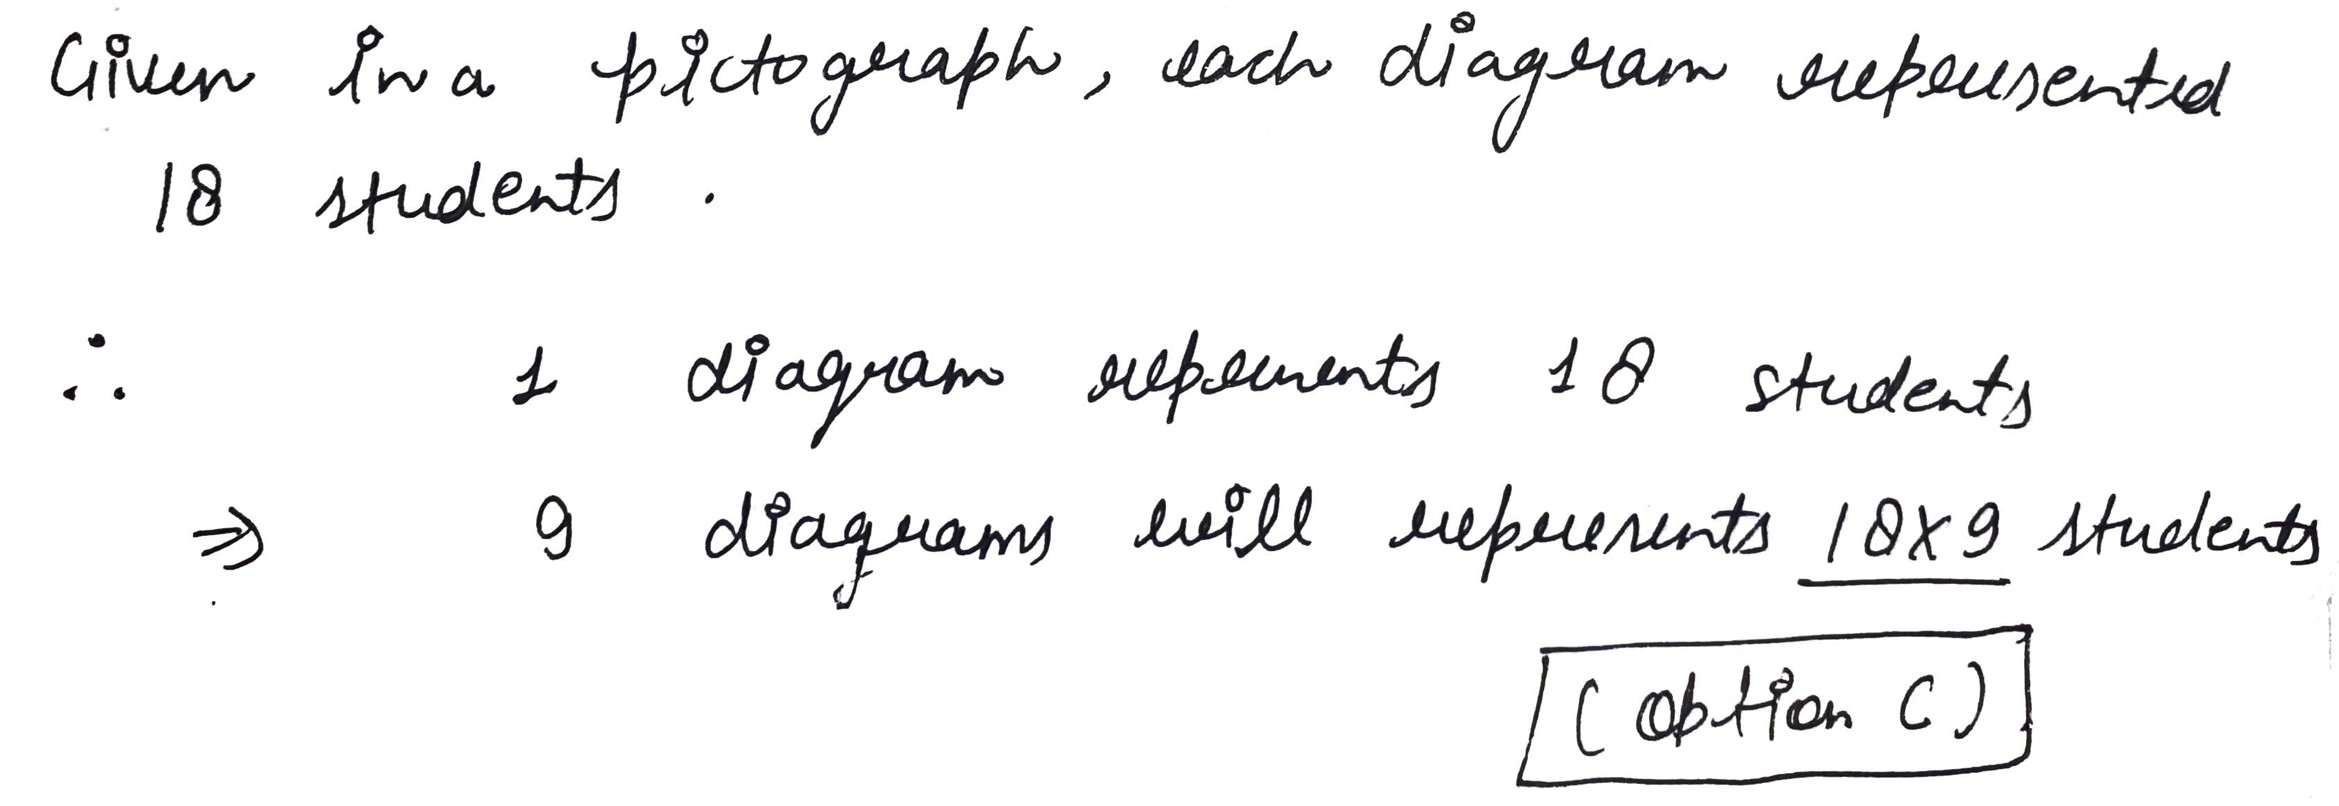 Given in a pictograph, each diagram represented
18 students.
∴ 1 diagram represents 18 students
⇒ 9 diagrams will represents 18×9 students
(Option C)